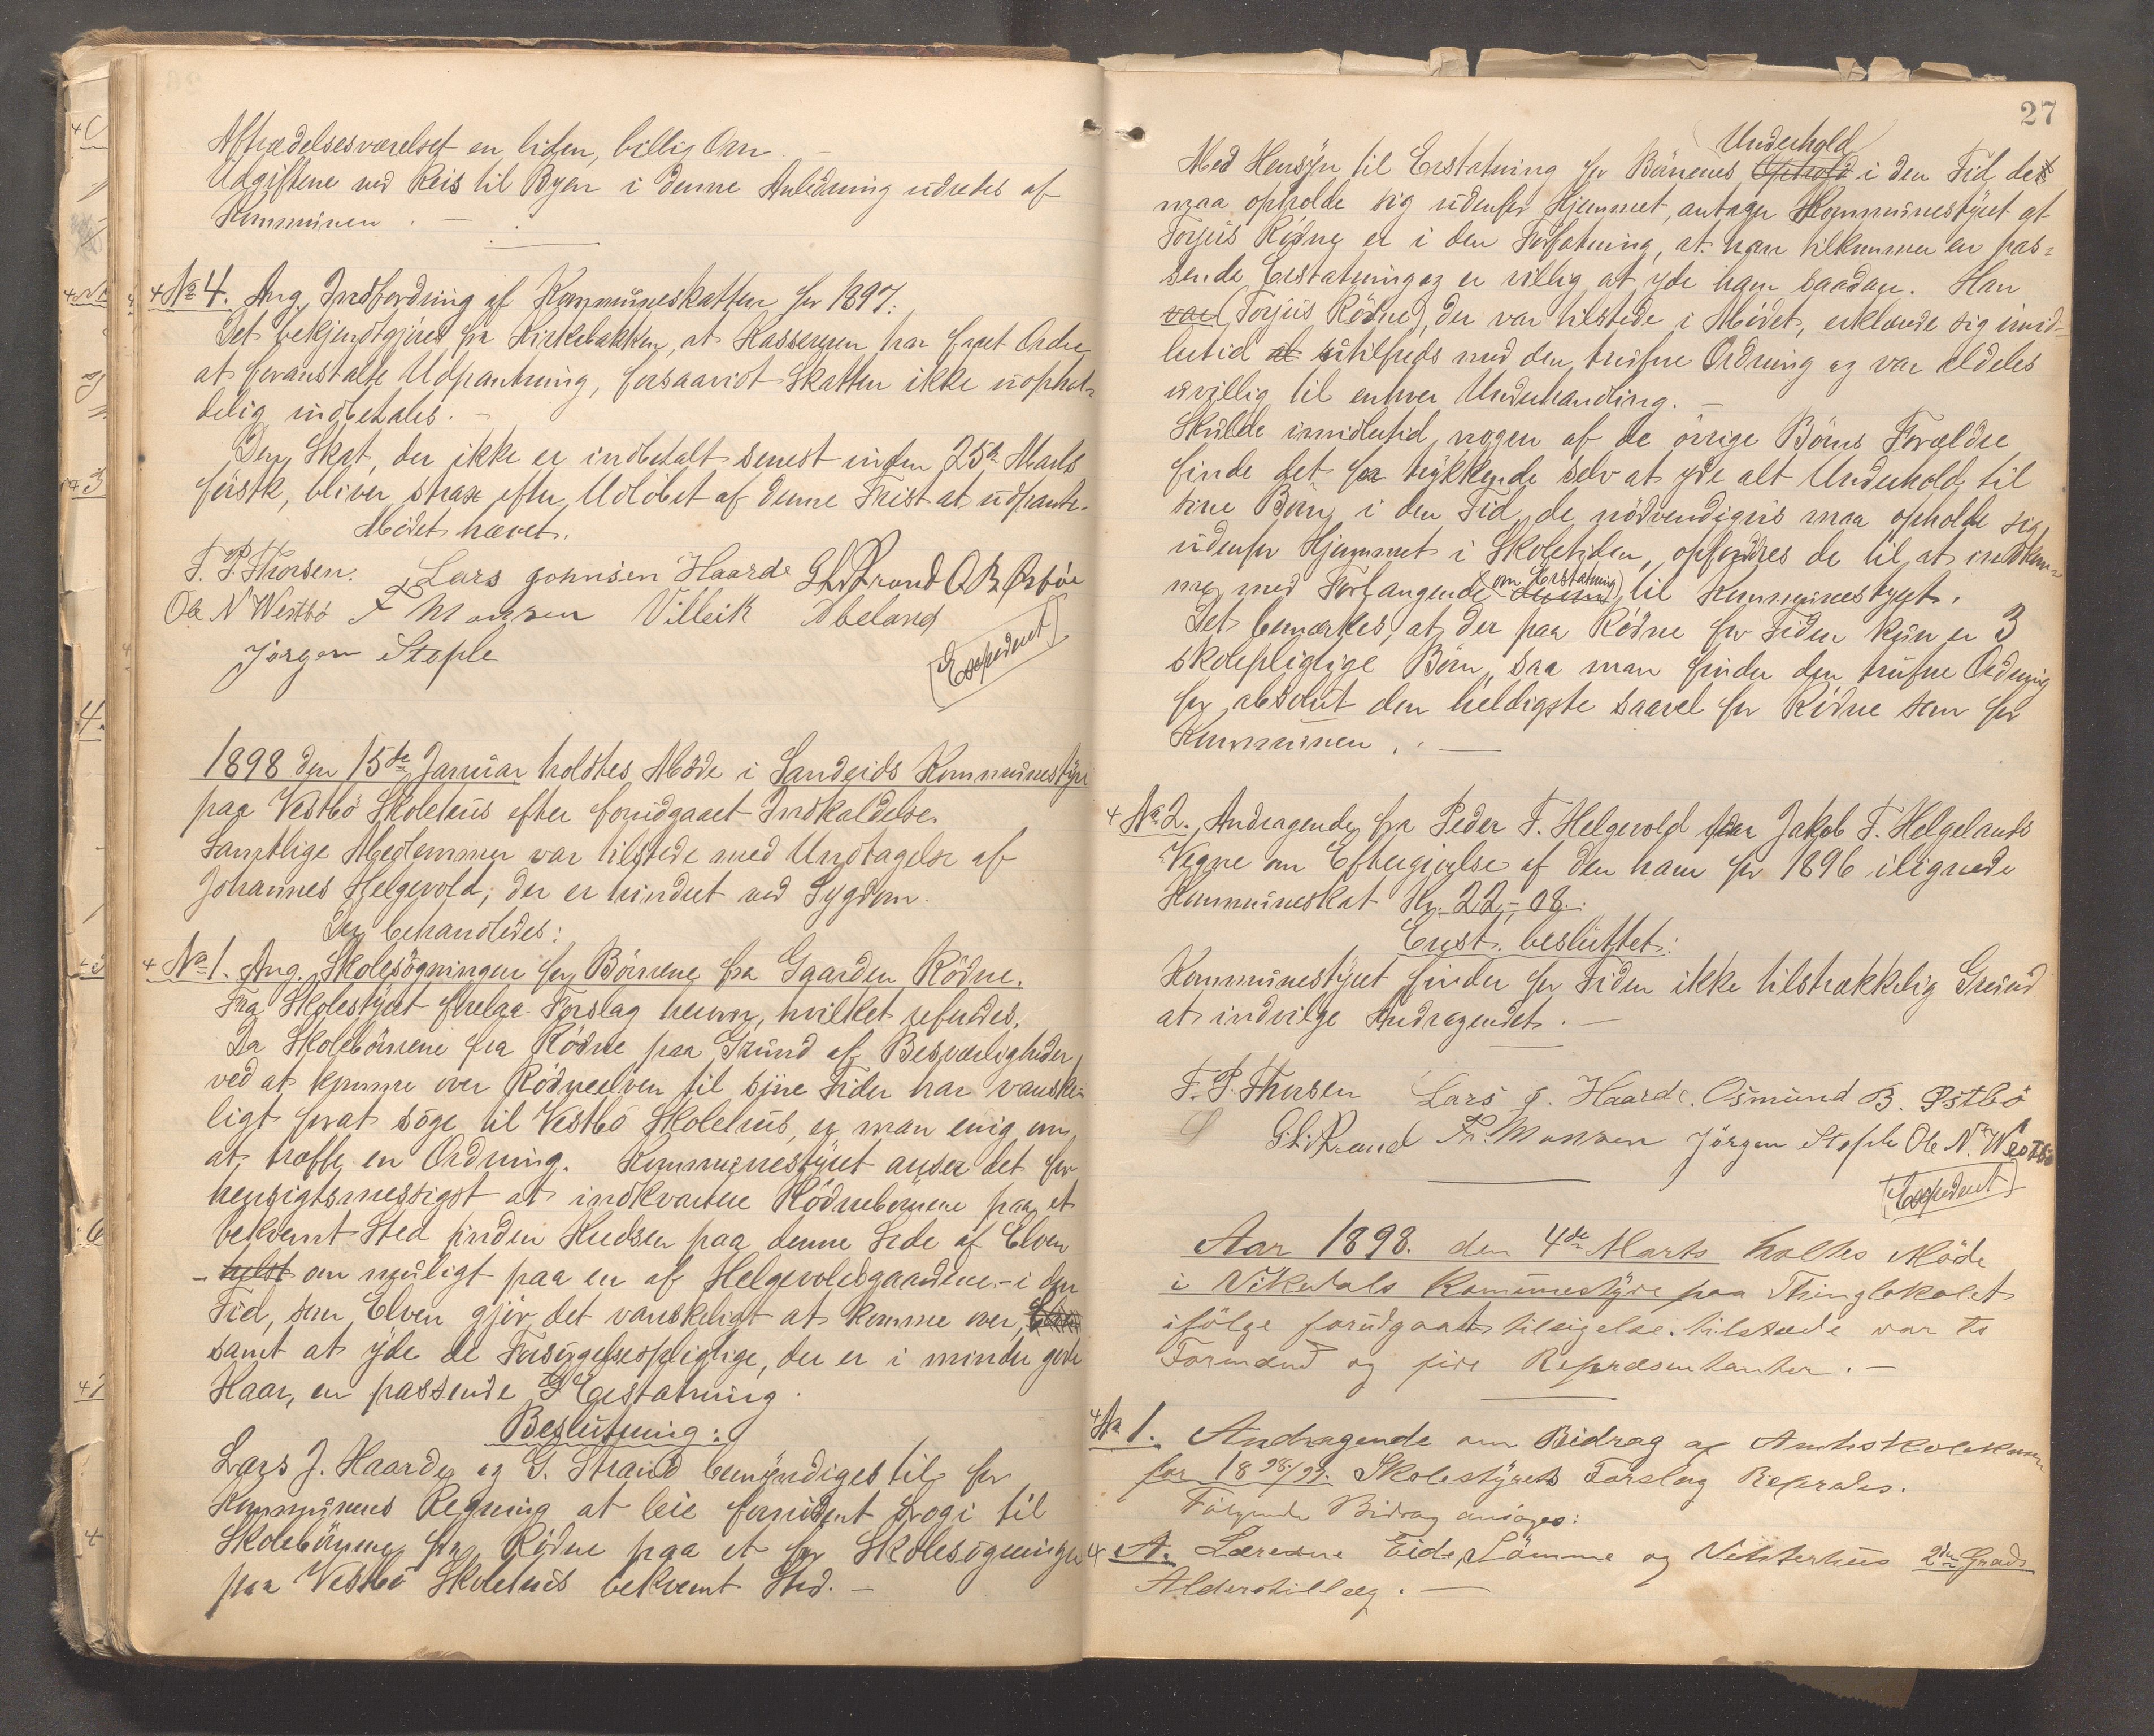 Aftrædelsesværelset en liden, billig Ovn. —
Udgiftene ved Reis til Byen i denne Anledning udredes af
Kommunen. —
No 4. Ang. Indfordring af Kommuneskatten for 1897.
Det bekjendtgjøres fra Kirkebakken, at Kassereren har faaet Ordre
at foranstalte Udpantning, forsaavidt Skatten ikke uophol-
delig indbetales. —
Den Skat, der ikke er indbetalt senest inden 25de Marts
førstk, bliver strax efter Udløbet af denne Frist at udpante.
Mødet hævet.
T. P. Thorsen. Lars Johnsen Haarde G L Strand O B Østbøe
Ole N Westbø F Monsen Villeik Abeland
Jörgen Stople
Expedert
1898 den 15de Januar holdtes Møde i Sandeids Kommunestyre
paa Vestbø Skolehus efter forudgaaet Indkaldelse.
Samtlige Medlemmer var tilstede med Undtagelse af
Johannes Helgevold, der er hindret ved Sygdom.
Der behandledes:
No 1. Ang. Skolesøgningen for Børnene fra Gaarden Rödne.
Fra Skolestyret forelaa Forslag herom, hvilket refereredes.
Da Skolebørnene fra Rödne paa Grund af Besværligheder
ved at komme over Rödneelven til sine Tider har vanske-
ligt for at søge til Vestbø Skolehus, er man enig om
at træffe en Ordning. Kommunestyret anser det for
hensigtsmessigst at indkvartere Rödnebørnene paa et
bekvemt Sted inden Kredsen paa denne Side af Elven
— helst om muligt paa en af Helgevoldsgaardene — i den
Tid, som Elven gjør det vanskeligt at komme over,
samt at yde de Forsørgelsespligtige, der er i mindre gode
Kaar, en passende Erstatning.
Beslutning:
Lars J. Haarde og G. Strand bemyndiges til for
Kommunens Regning at leie fornødent Logi til
Skolebørnene fra Rödne paa et for Skolesøgningen
paa Vestbø Skolehus bekvemt Sted. —
27
Underhold
Med Hensyn til Erstatning for Børnenes Ophold i den Tid de
maa opholde sig udenfor Hjemmet, antager Kommunestyret at
Torjus Rödne er i den Forfatning, at han tilkommer en pas-
sende Erstatning og er villig at yde ham saadan. Han
var (Torjus Rödne), der var tilstede i Mødet, erklærede sig imid-
lertid at utilfreds med den trufne Ordning og var aldeles
uvillig til enhver Underhandling. —
Skulde imidlertid nogen af de øvrige Børns Forældre
finde det for trykkende selv at yde alt Underhold til
sine Børn i den Tid, de nødvendigvis maa opholde sig
udenfor Hjemmet i Skoletiden, opfordres de til at indkom-
me med Forlangende om Erstatning til Kommunestyret.
Det bemærkes, at der paa Rödne for Tiden kun er 3
skolepligtige Børn, saa man finder den trufne Ordning
for absolut den heldigste saavel for Rödne som for
Kommunen. —
No 2. Andragende fra Peder T. Helgevold paa Jakob T. Helgelands
Vegne om Eftergivelse af den ham for 1896 ilignede
Kommuneskat Kr. 22-08.
Enst. besluttet:
Kommunestyret finder for Tiden ikke tilstrækkelig Grund
at indvilge Andragendet. —
T. P. Thorsen Lars J. Haarde. Osmund B. Østbö
G L Strand Fr. Monsen Jörgen Stople Ole N. Westbø
Expedert
Aar 1898. den 4de Marts holtes Møde
i Vikedals Kommunestyre paa Thinglokalet
ifölge forudgaaet tilsigelse. tilstæde var to
Formænd og fire Repræsentanter. —
No 1. Andragende om Bidrag af Amtsskolekassen
for 1898/99. Skolestyrets Forslag Referedes.
Fölgende Bidrag ansöges:
A. Lærerne Eide, Lömme og Vikterhus 2den Grads
Alderstillæg. —